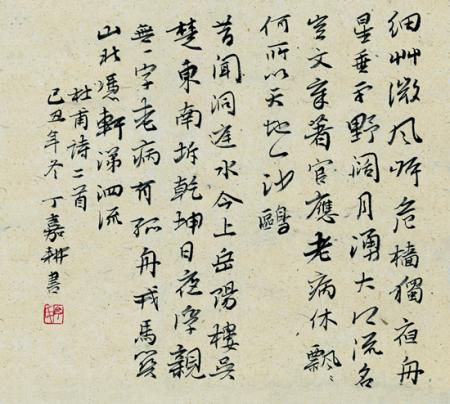 細艸微風岸危檣獨夜舟
星垂平野闊月湧大江流名
豈文章著官應老病休飄〻
何所以天地一沙鷗
昔聞洞庭水今上岳陽樓吳
楚東南坼乾坤日夜浮親
無一字老病有孤舟戎馬關
山北憑軒涕泗流
杜甫詩二首
己丑年冬丁嘉耕書